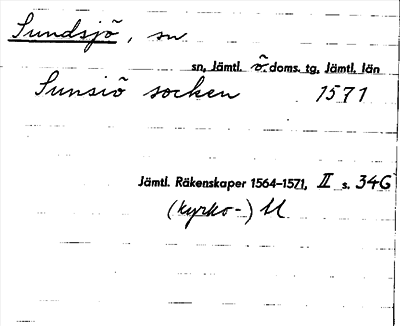 Sundsjö, sn
sn, Jämtl. ö. doms. tg, Jämtl. län
Sunsiö socken 1571
Jämtl. Räkenskaper 1564–1571, II s. 34G
(kyrko-) U